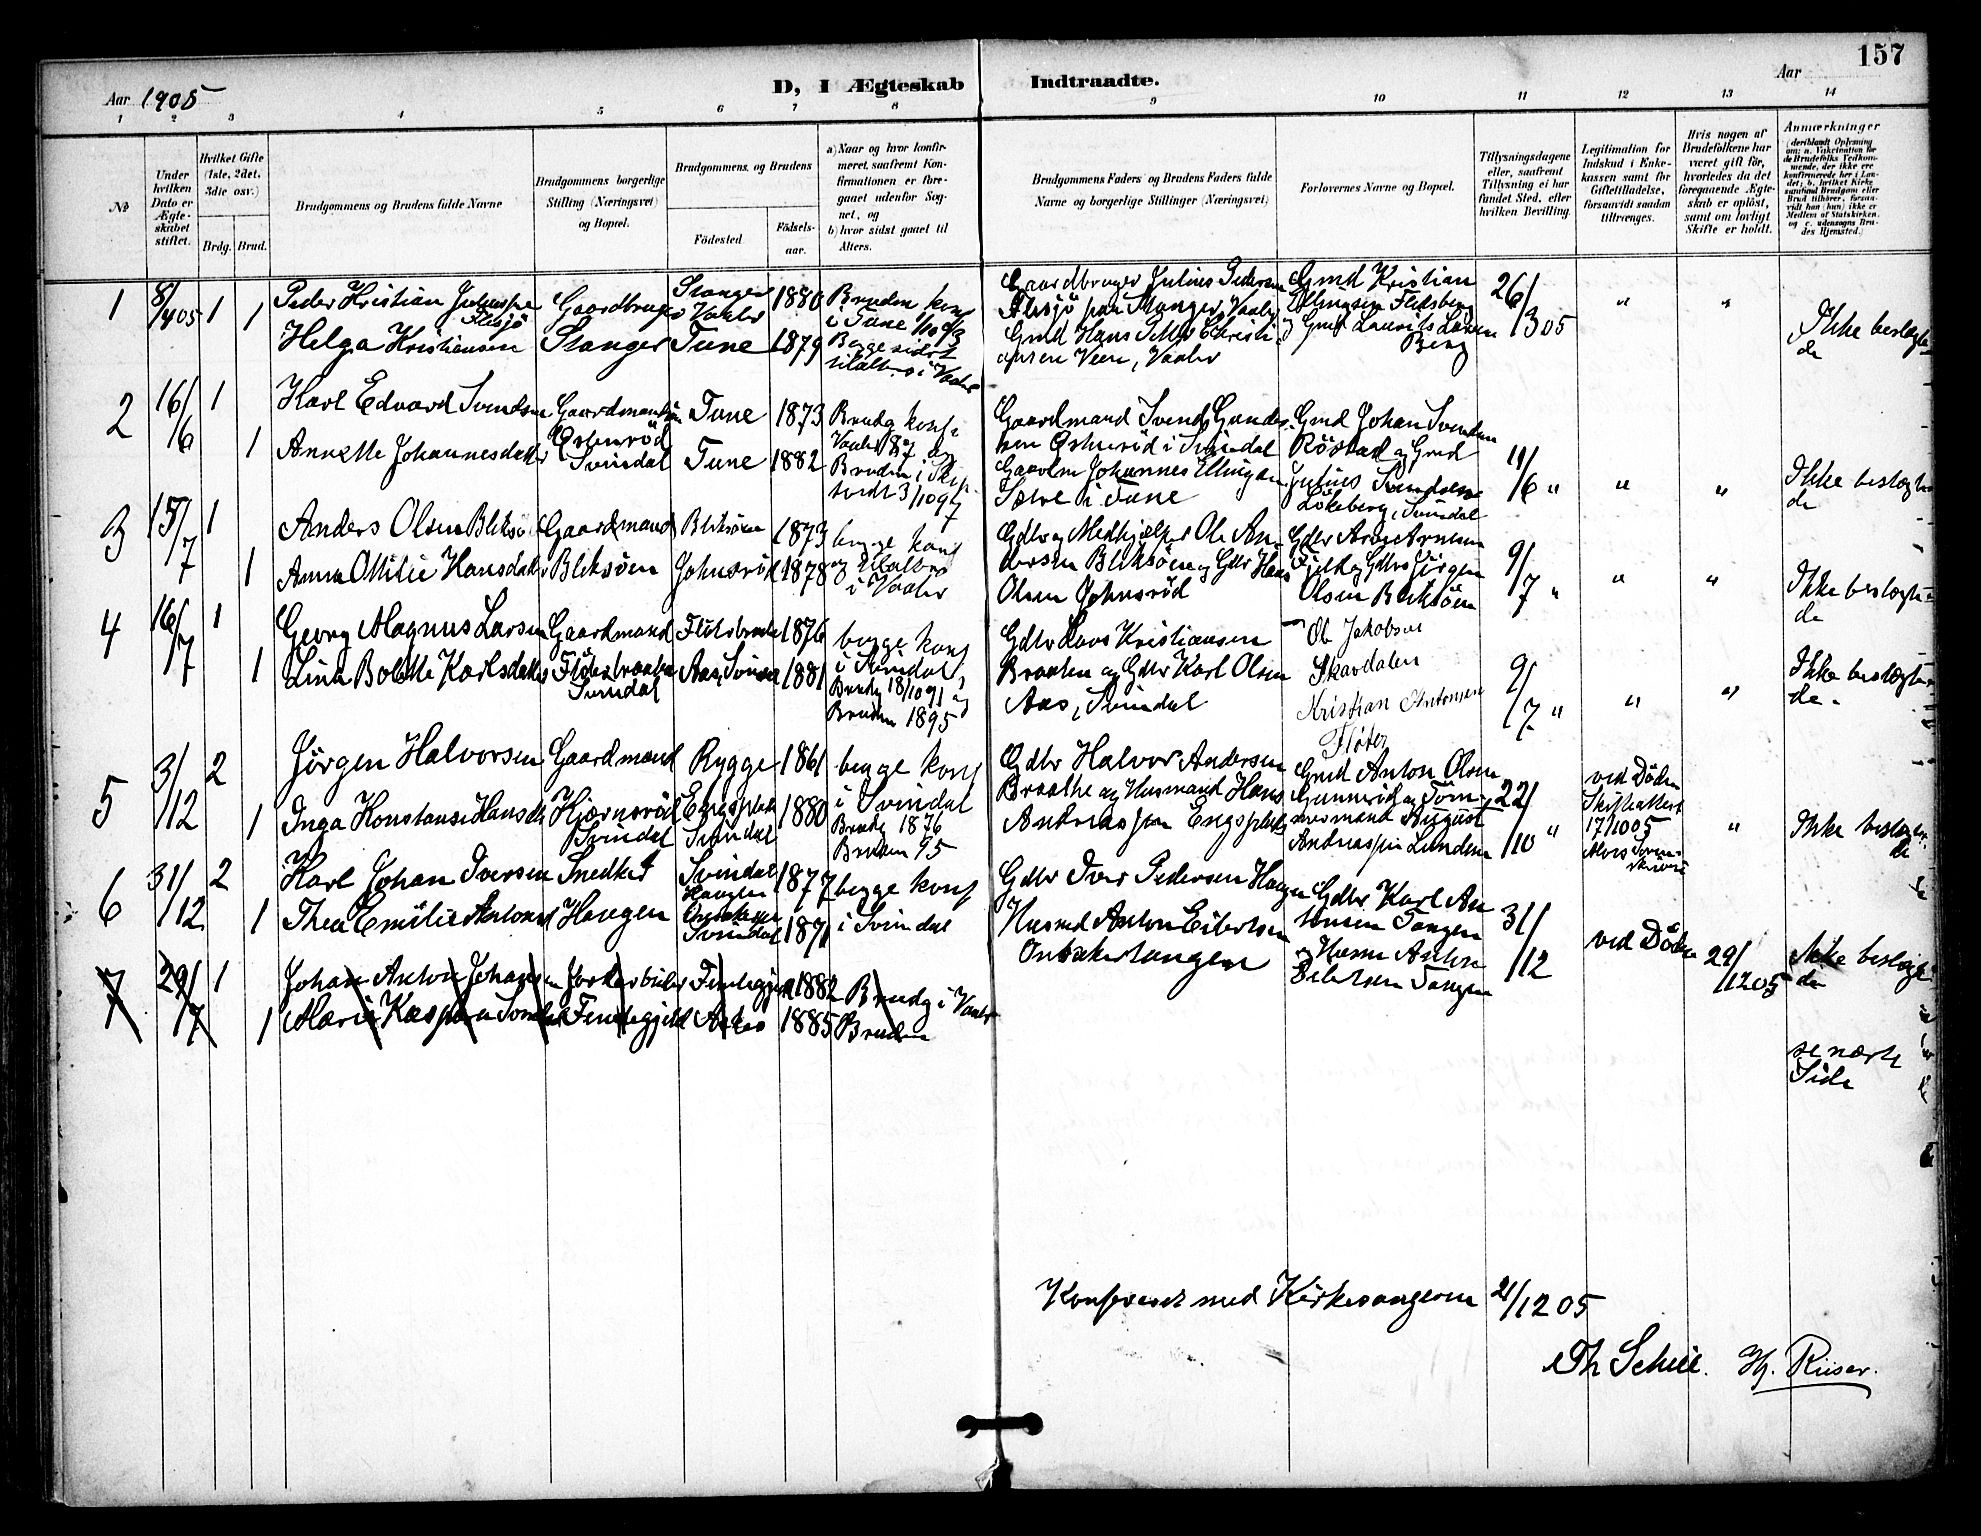 157
Aar 1905
D, I Ægteskab Indtraadte.
Aar
1 2 3 4 5 6 7 8 9 10 11 12 13 14
No
Under hvilken Dato er Ægteskabet stiftet.
Hvilket Gifte (1ste, 2det, 3die osv.)
Brdg. Brud.
Brudgommens og Brudens fulde Navne
Brudgommens borgerlige Stilling (Næringsvei) og Bopæl.
Brudgommens og Brudens
Fødested
Fødselsaar.
a) Naar og hvor konfirmeret, saafremt Konfirmationen er foregaaet udenfor Sognet, og
b) hvor sidst gaaet til Alters.
Brudgommens Faders og Brudens Faders fulde Navne og borgerlige Stillinger (Næringsvei)
Forlovernes Navne og Bopæl.
Tillysningsdagene eller, saafremt Tillysning ei har fundet Sted, efter hvilken Bevilling.
Legitimation for Indskud i Enkekassen samt for Giftetilladelse, forsaavidt saadan tiltrænges.
Hvis nogen af Brudefolkene har været gift før, hvorledes da det foregaaende Ægteskab er opløst, samt om lovligt Skifte er holdt.
Anmærkninger
1 8/4 05 1 Peder Kristian Juliussen Flesjø Gaardbruger Stanger Vaaler 1880 Bruden konf i Tune
1 Helga Kristiansen Stanger Tune 1879 Begge sidst til alters i Vaaler
Gaardbruger Julius Pedersen Flesjø paa Stanger, Vaaler
Gmd Hans Peter Christiansen Veen, Vaaler
Gmd Kristian Ellingsen Flesberg og Gmd Laurits Larsen Berg
26/3 05 " " Ikke beslægtede
2 16/6 1 Karl Edvard Svendsen Gaardmandssøn Tune 1873 Brudg konf i Vaaler 87 og
1 Annette Johannesdatter Østenrød Svindal Tune 1882 Bruden i Skipt
Gaardmand Svend Gundersen Østenrød i Svindal
Gaardm Johannes Ellingsen i Tune
Gmd Johan Svendsen Røstad og Gmd Julius Svendsen Løkeberg, Svindal
11/6 " " " Ikke beslægtede
3 15/7 1 Anders Olsen Bliksøen Gaardmand Bliksøen 1873 begge konf
1 Anna Ottilie Hansdatter Bliksøen Johnsrød 1878 og til alters i Vaaler
Gdbr og Medhjælper Ole Andersen Bliksøen og Gdbr Hans Olsen Johnsrød
Gdbr Arne Arnesen og Gdbr Jørgen Olsen Bliksøen
9/7 " " " Ikke beslægtede
4 16/7 1 Georg Magnus Larsen Gaardmand 1876 begge konf
1 Lina Bolette Karlsdatter Svindal Aas, Svindal 1881 i Svindal, Brudg 18/10 91 og Bruden 1895
Gdbr Lars Kristiansen Braaten og Gdbr Karl Olsen Aas, Svindal
Ole Jakobsen Skavdalen
Kristian Antonsen Fløter
9/7 " " " Ikke beslægtede.
5 3/12 2 Jørgen Halvorsen Gaardmand Rygge 1861 begge konf
1 Inga Konstanse Hansdtr Hjørnsrød Svindal Engsplads Svindal 1880 i Svindal Brudg 1876 Bruden 95
Gdbr Halvor Andersen Braathe og Husmand Hans Andreassen Engsplads
Gmd Anton Olsen Gunnerød og Tømmermand August Andreassen Lunden
22/10 " ved Døden Skifteattest 17/10 05 " Ikke beslægtede
6 31/12 2 Karl Johan Iversen Snedker Svindal Haugen 1877 begge konf
1 Thea Emilie Antonsd Haugen Svindal 1871 i Svindal
Gdbr Iver Pedersen Haugen
Husmd Anton Eilertsen Onsakertangen
Gdbr Karl Antonsen Tangen og Husm Anton Eilertsen Tangen
31/12 ved Døden 29/12 05 Ikke beslægtede
7 29/7 1 Johan Anton Johansen 1882 Brudg i Vaaler
7 1 Marie 1885 Bruden
se næste Side
Konfereret med Kirkesangeren 2/12 05
Th Scheie. Hj. Riiser.